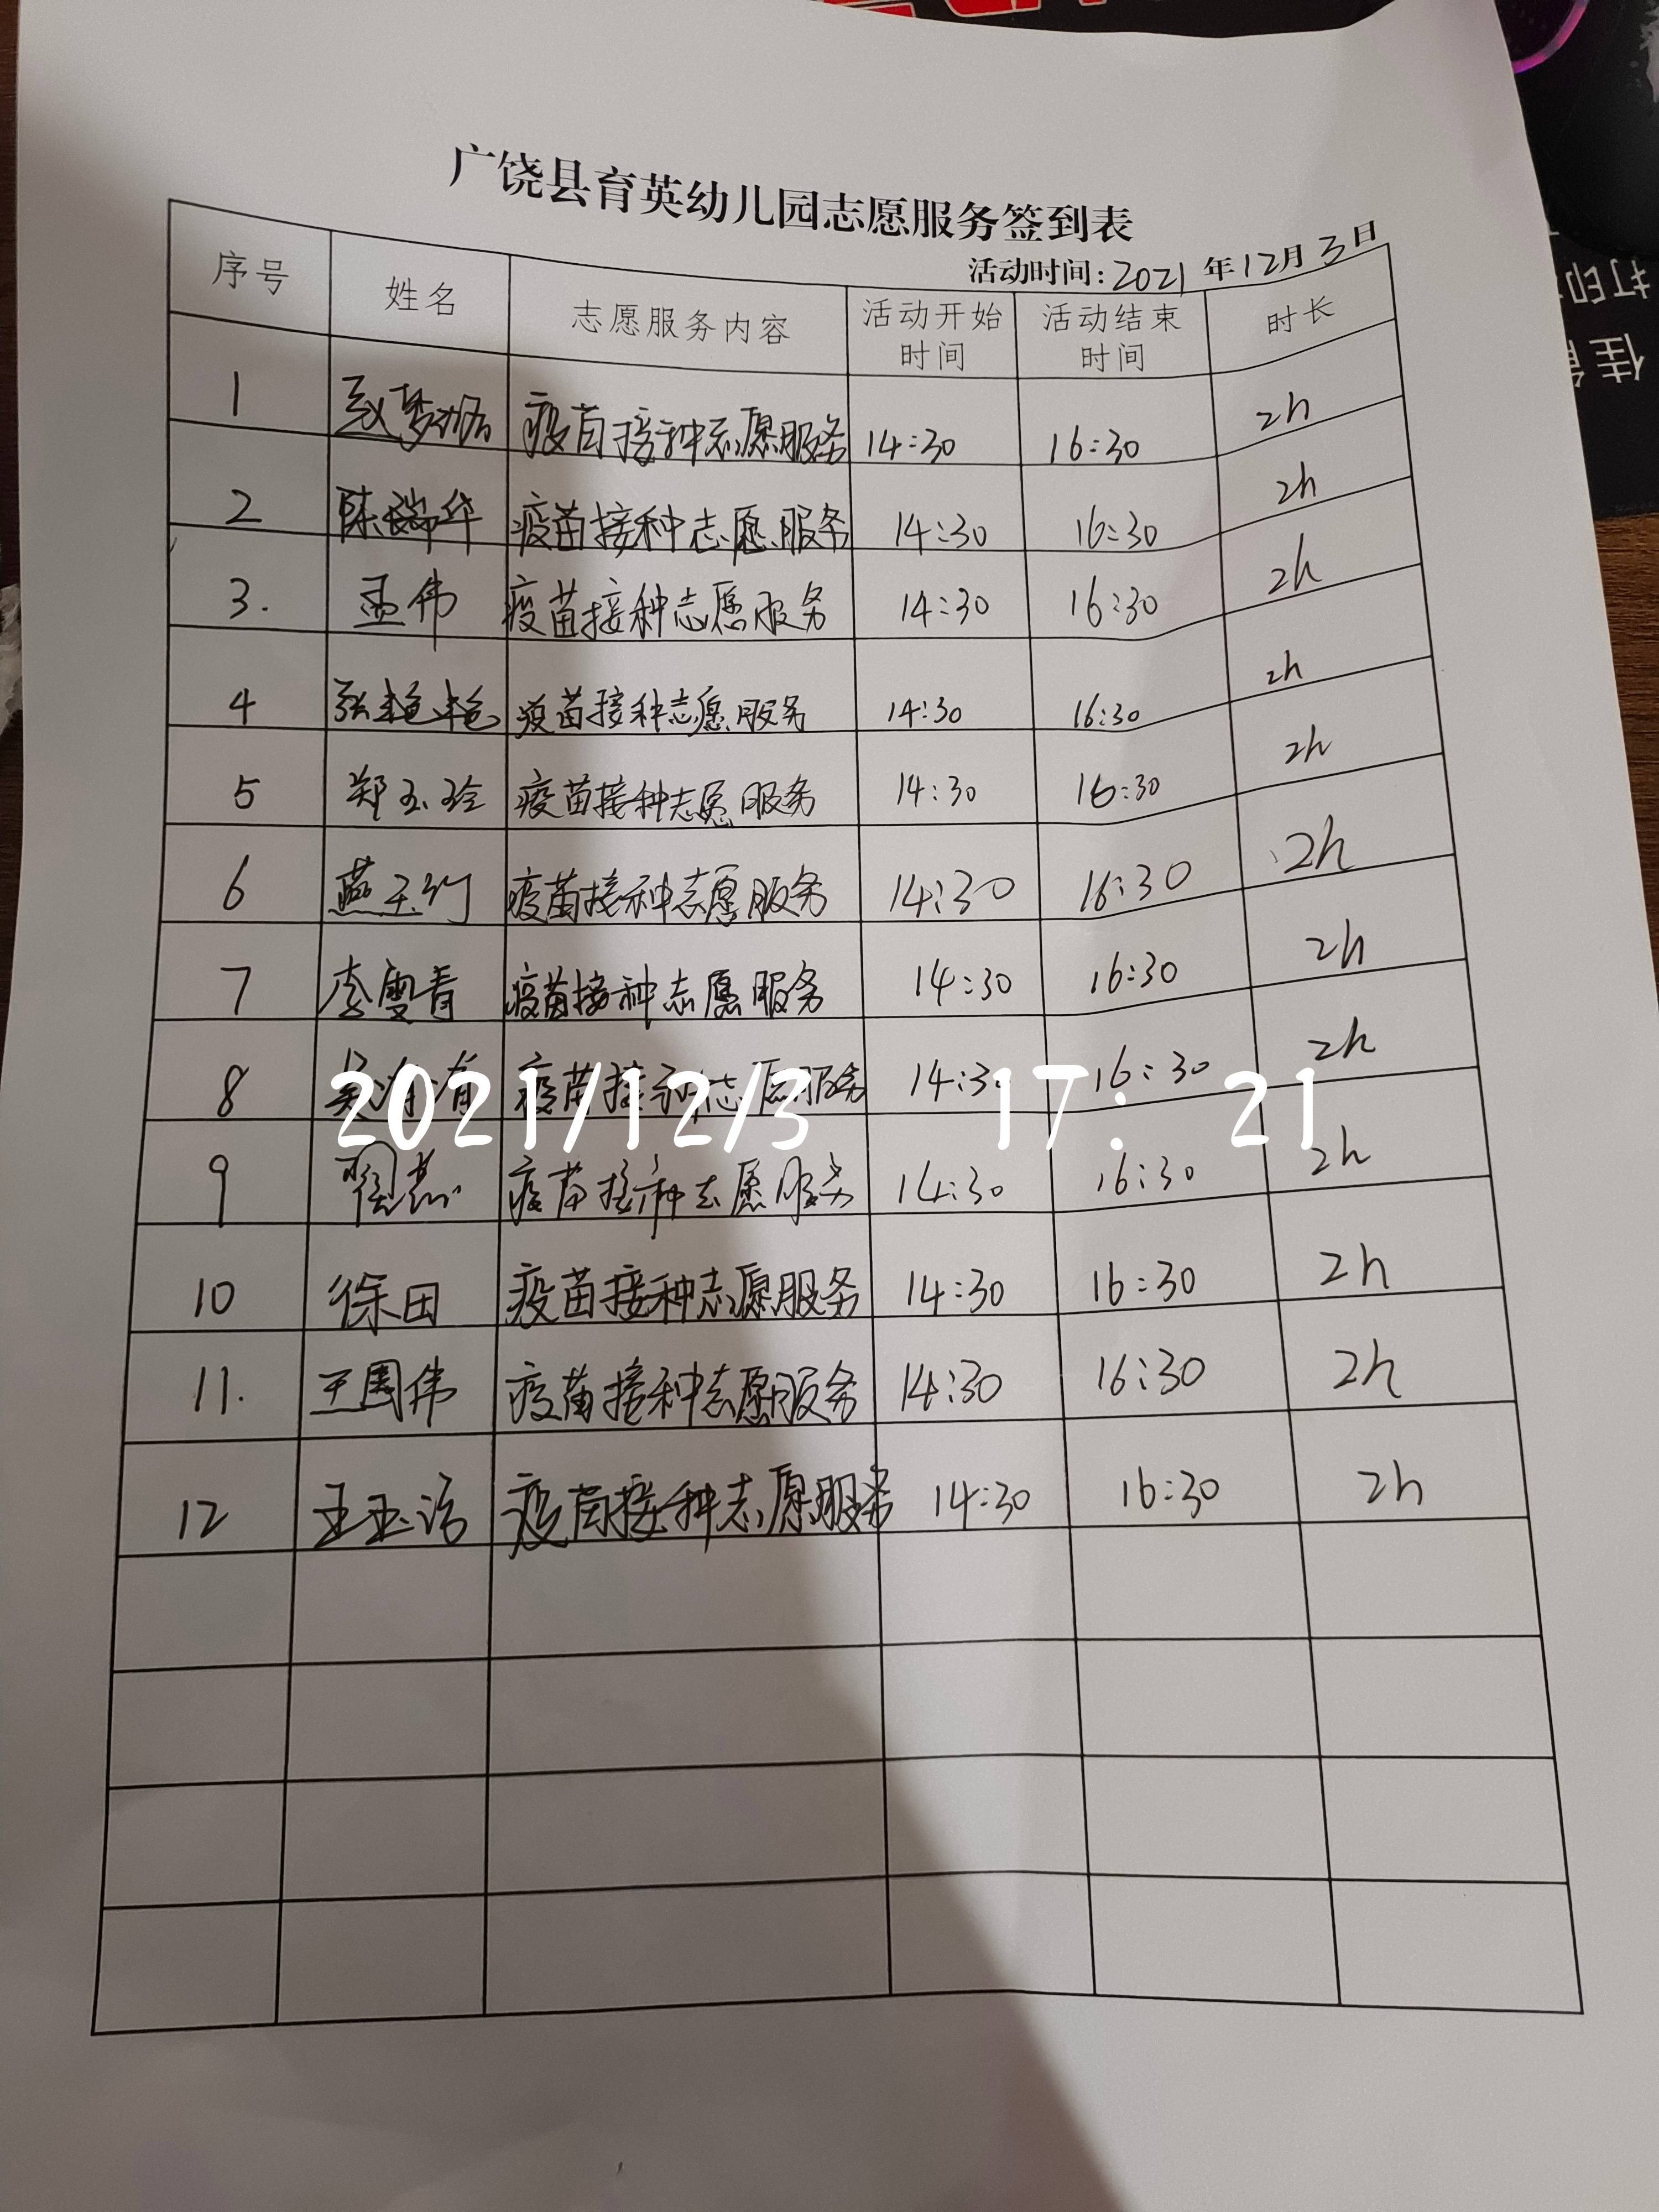 广饶县育英幼儿园志愿服务签到表
活动时间：2021年12月3日
序号 姓名 志愿服务内容 活动开始时间 活动结束时间 时长
1 疫苗接种志愿服务 14:30 16:30 2h
2 陈瑞华 疫苗接种志愿服务 14:30 16:30 2h
3. 孟伟 疫苗接种志愿服务 14:30 16:30 2h
4 张艳艳 疫苗接种志愿服务 14:30 16:30 2h
5 郑玉玲 疫苗接种志愿服务 14:30 16:30 2h
6 燕玉 疫苗接种志愿服务 14:30 16:30 2h
7 李雯青 疫苗接种志愿服务 14:30 16:30 2h
8 疫苗接种志愿服务 14:30 16:30 2h
2021/12/3 17: 21
9 疫苗接种志愿服务 14:30 16:30 2h
10 徐田 疫苗接种志愿服务 14:30 16:30 2h
11. 王周伟 疫苗接种志愿服务 14:30 16:30 2h
12 王玉洁 疫苗接种志愿服务 14:30 16:30 2h